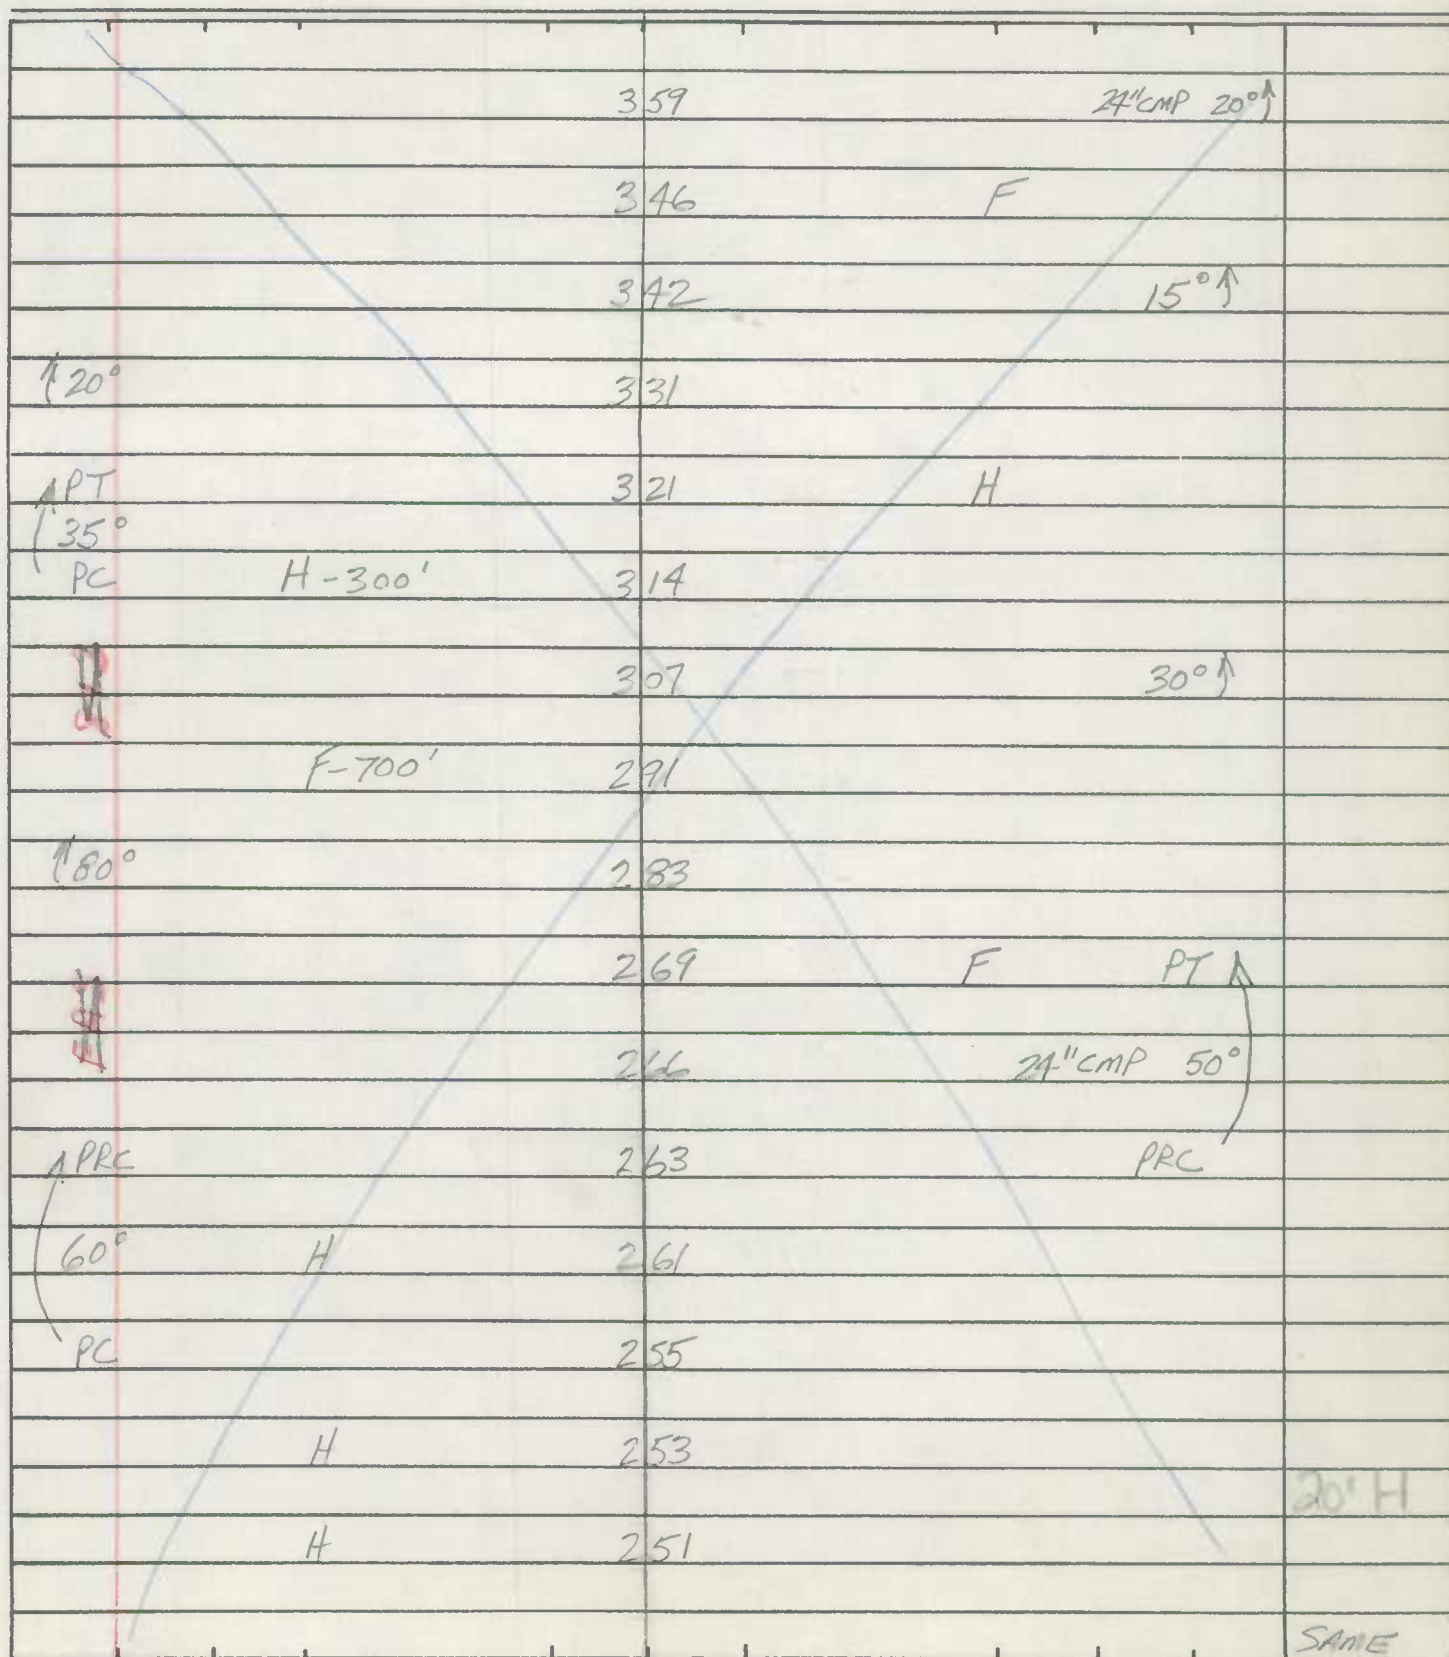 359 24"CMP 20°
346 F
342 15°
20° 331
PT 321 H
35°
PC H-300' 314
307 30°
F-700' 291
80° 283
269 F PT
266 24"CMP 50°
PRC 263 PRC
60° H 261
PC 255
H 253
20' H
H 251
SAME